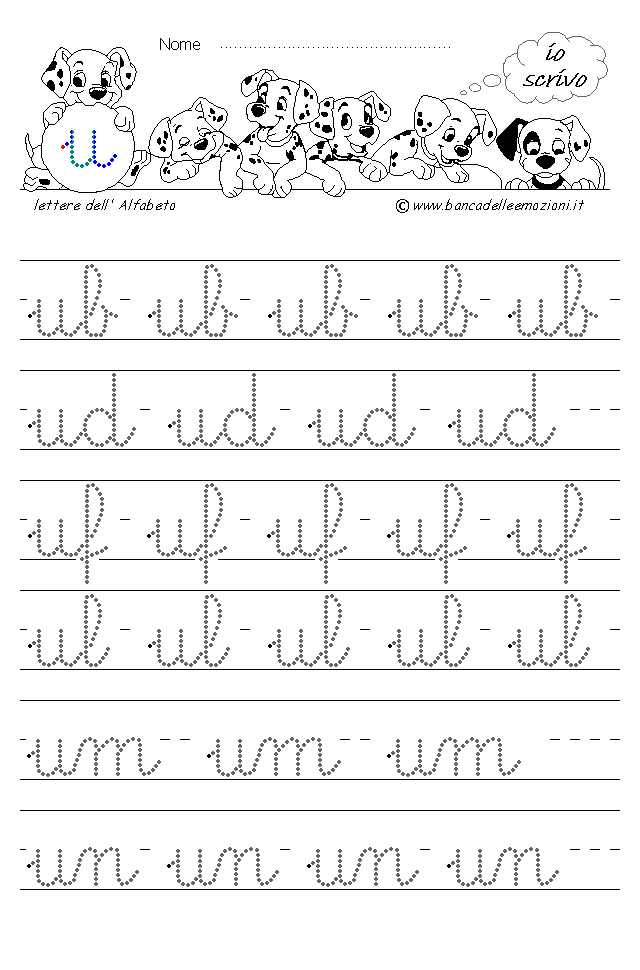 Nome ..........................................
io
scrivo
u
lettere dell' Alfabeto
© www.bancadelleemozioni.it
ub ub ub ub ub
ud ud ud ud
uf uf uf uf uf
ul ul ul ul ul
um um um
un un un un